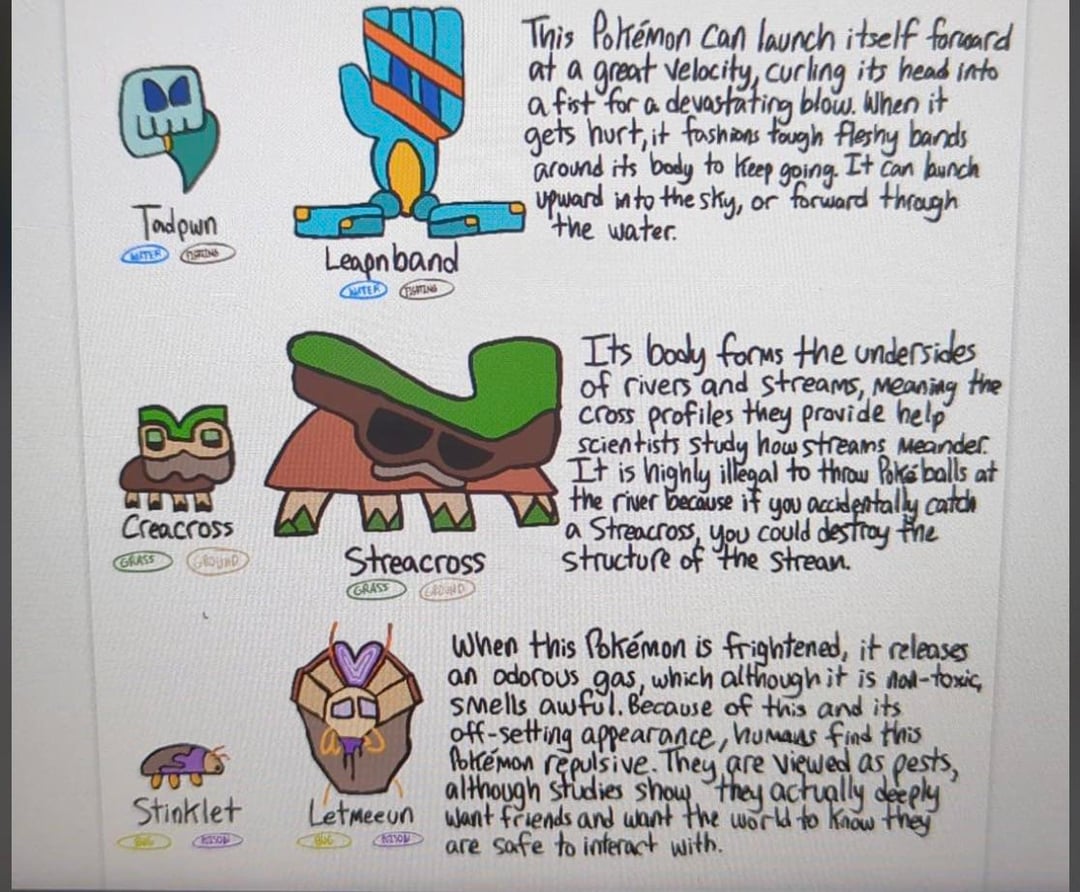 This Pokémon can launch itself forward
at a great velocity, curling its head into
a fist for a devastating blow. When it
gets hurt, it fashions tough fleshy bands
around its body to keep going. It can launch
upward into the sky, or forward through
the water.
Tadpwn
WATER FIGHTING
Leapnband
WATER FIGHTING
Its body forms the undersides
of rivers and streams, meaning the
cross profiles they provide help
scientists study how streams meander.
It is highly illegal to throw Pokéballs at
the river because if you accidentally catch
a Streacross, you could destroy the
structure of the strean.
Creacross
GRASS GROUND
Streacross
GRASS GROUND
When this Pokémon is frightened, it releases
an odorous gas, which although it is non-toxic,
smells awful. Because of this and its
off-setting appearance, humans find this
Pokémon repulsive. They are viewed as pests,
although studies show they actually deeply
want friends and want the world to know they
are safe to interact with.
Stinklet
BUG POISON
Letmeeun
BUG POISON